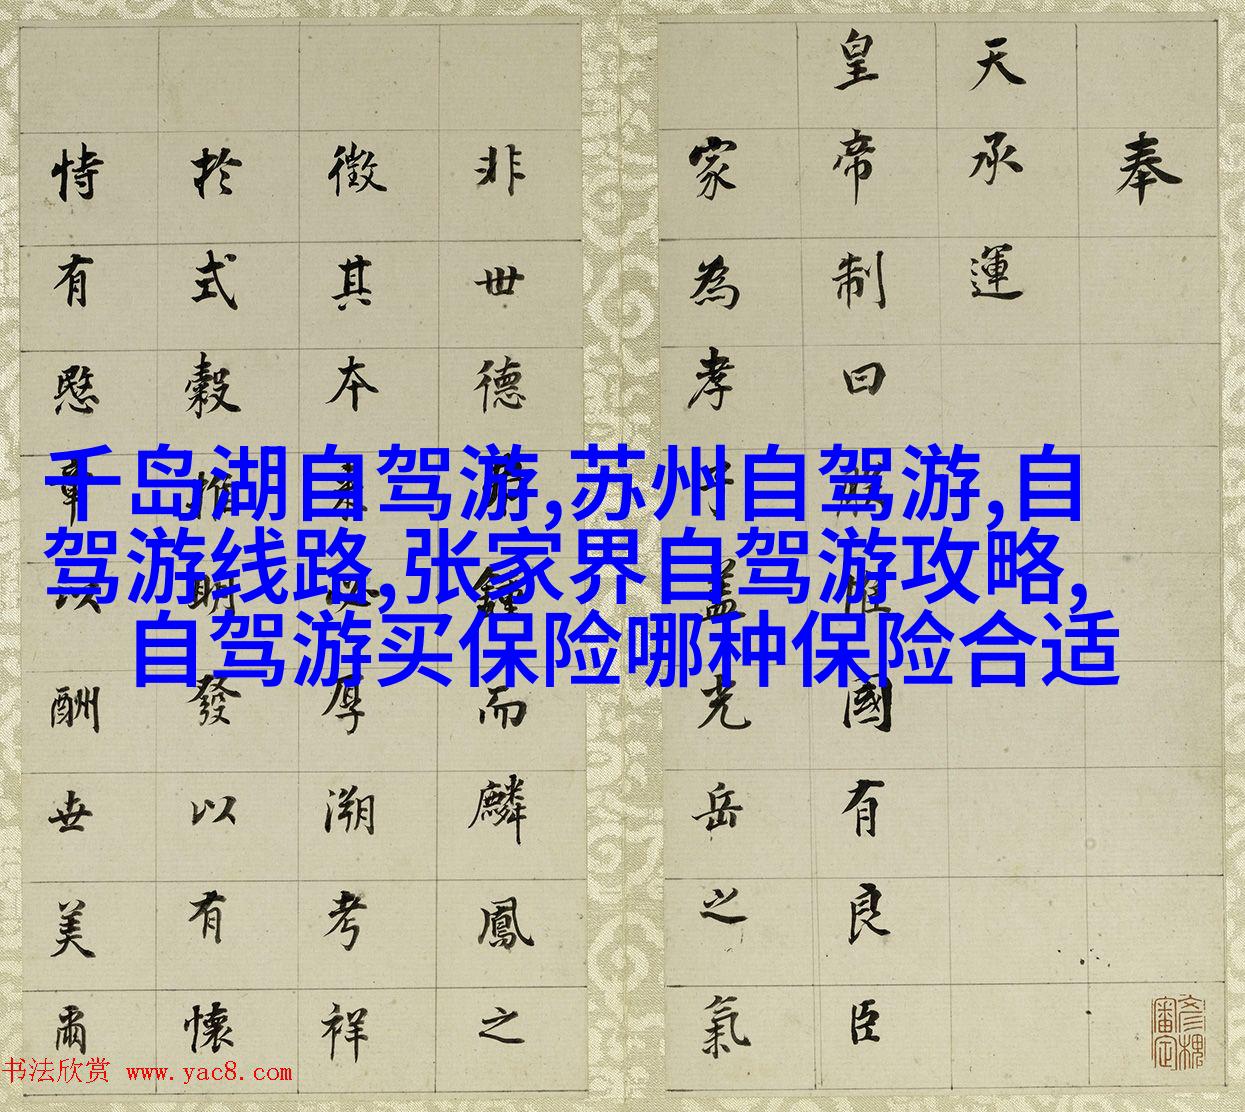 奉
天承運
皇帝制曰朕惟國有良臣
家為孝子蓋光岳之氣
非丗德鍾而麟鳳之
徵其本必厚溯考祥
於式穀推明發以有懷
恃有愍章以酬世美爾
彥槐審定
千岛湖自驾游,苏州自驾游,自
驾游线路,张家界自驾游攻略,
自驾游买保险哪种保险合适
书法欣赏 www.yac8.com